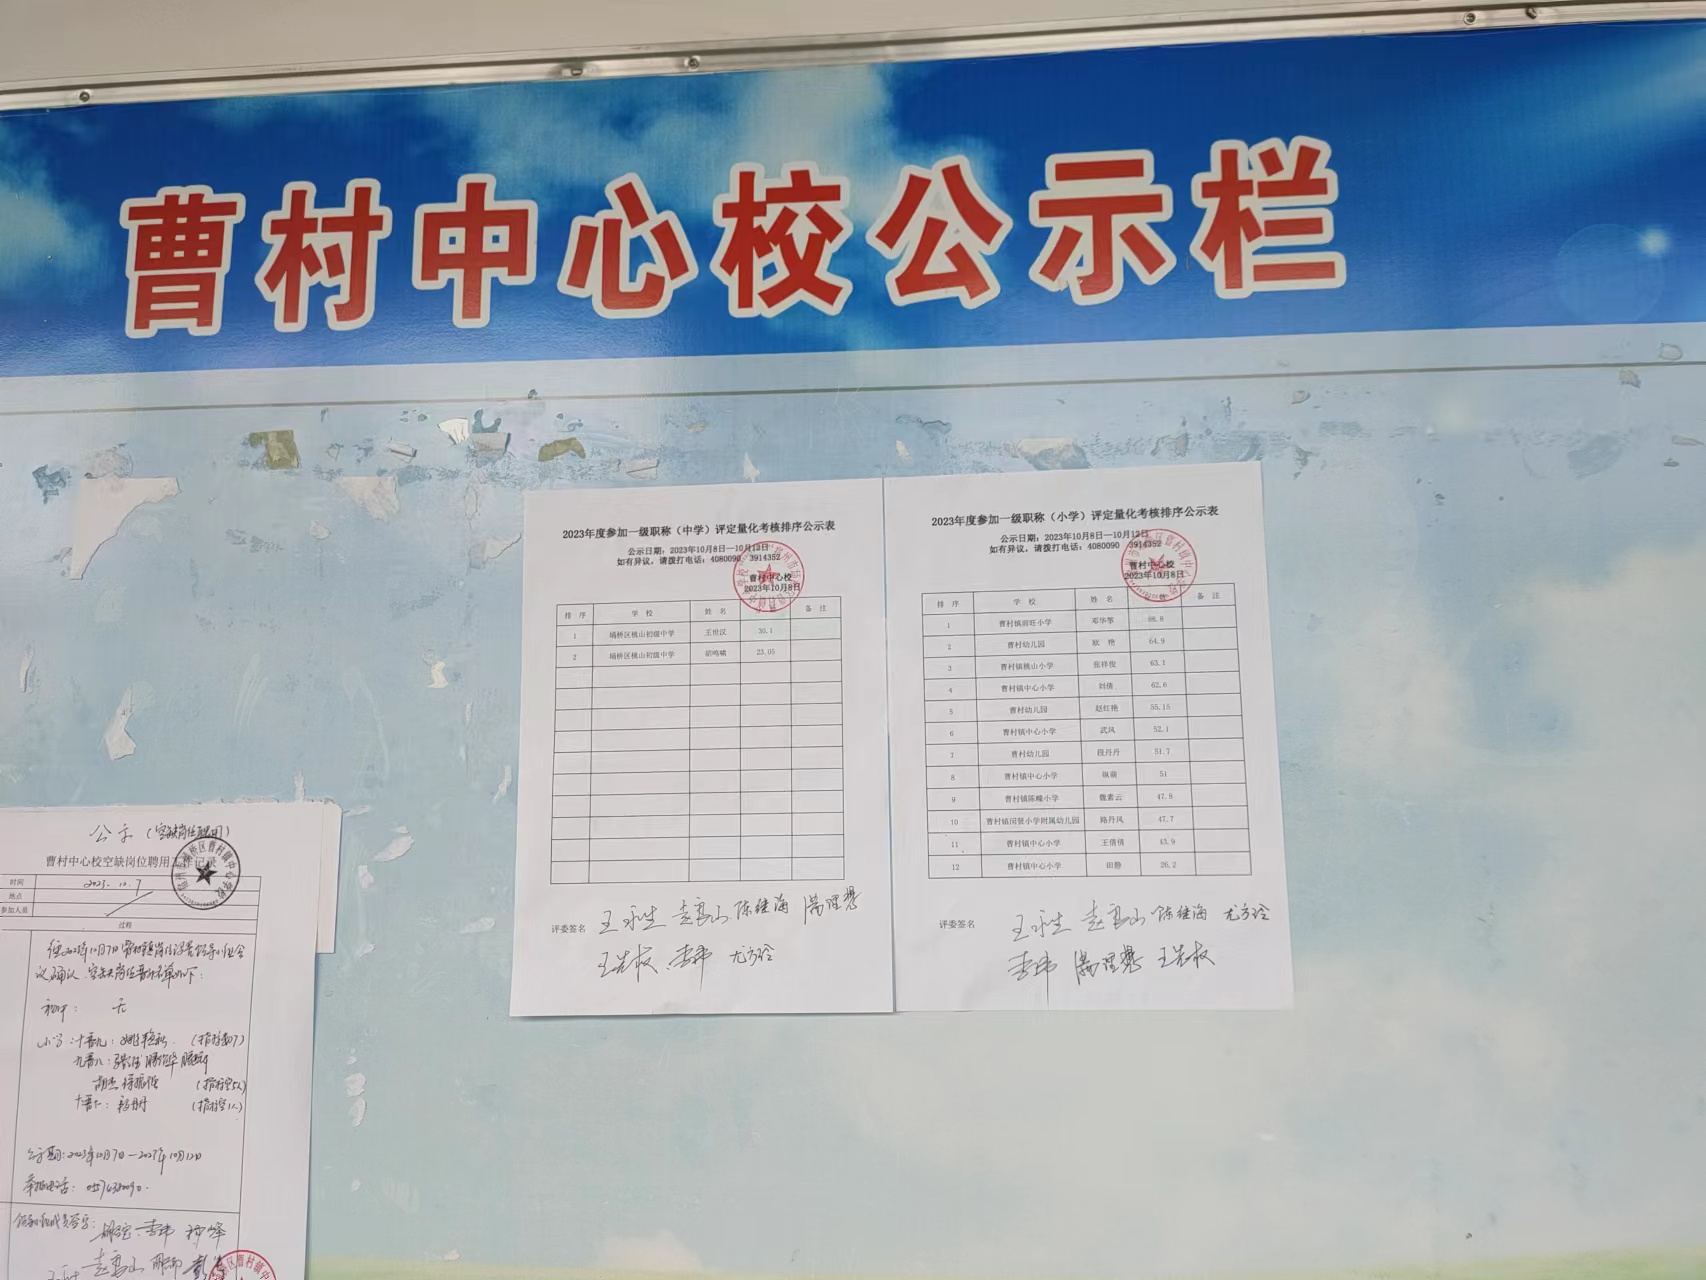 曹村中心校公示栏
2023年度参加一级职称（中学）评定量化考核排序公示表
公示日期：2023年10月8日—10月12日
如有异议，请拨打电话：4080090 3914352
曹村中心校
2023年10月8日
排 序 学 校 姓 名 备 注
1 埇桥区桃山初级中学 王世汉 30.1
2 埇桥区桃山初级中学 胡鸣啸 23.05
评委签名 王永生 赵富山 陈继海
2023年度参加一级职称（小学）评定量化考核排序公示表
公示日期：2023年10月8日—10月12日
如有异议，请拨打电话：4080090 3914352
曹村中心校
2023年10月8日
排 序 学 校 姓 名 备 注
1 曹村镇前旺小学 邓华筝 88.8
2 曹村幼儿园 欧 艳 64.9
3 曹村镇桃山小学 张祥俊 63.1
4 曹村镇中心小学 刘倩 62.6
5 曹村幼儿园 赵红艳 55.15
6 曹村镇中心小学 武凤 52.1
7 曹村幼儿园 段丹丹 51.7
8 曹村镇中心小学 纵萌 51
9 曹村镇陈疃小学 魏素云 47.8
10 曹村镇闵贤小学附属幼儿园 路丹凤 47.7
11 曹村镇中心小学 王倩倩 43.9
12 曹村镇中心小学 田静 26.2
评委签名 王永生 赵富山 陈继海
公示（空缺岗位聘用）
曹村中心校空缺岗位聘用工作记录
时间 2023.10.7
地点
参加人员
过程
经2023年10月7日曹村镇岗位设置领导小组会
议确认，空缺岗位晋升名单如下：
初中： 无
公示期：2023年10月7日—2023年10月12日
举报电话：